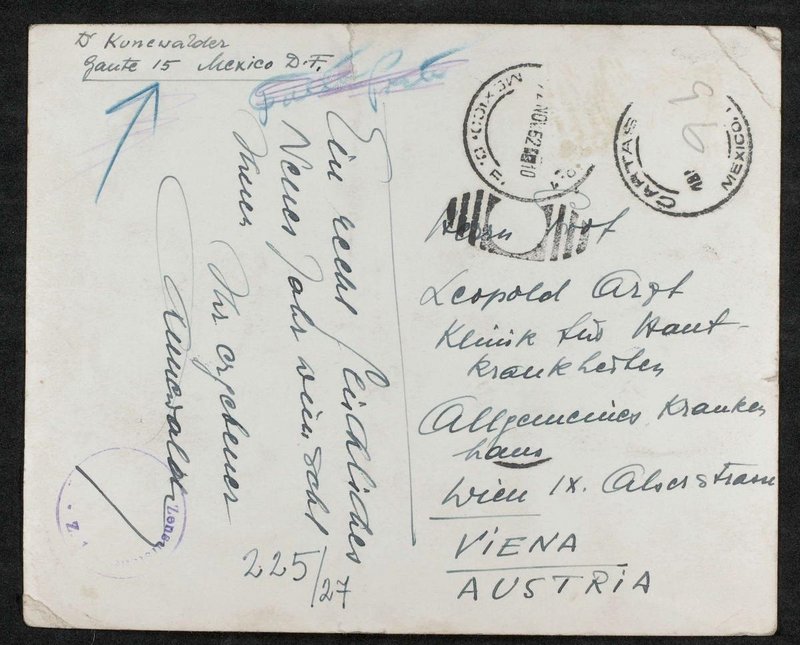 Dr Kunewalder
Gante 15 Mexico D.F.
Ein recht
Neues Jahr wünscht
Ihnen
Ihr ergebener
Kunewalder
225/27
MEXICO, D. F.
NOV. 52
10
CARTAS
MEXICO,
Herrn Prof
Leopold Arzt
Klinik für Haut-
krankheiten
Allgemeines Kranken
haus
Wien IX. Alserstrasse
VIENA
AUSTRIA